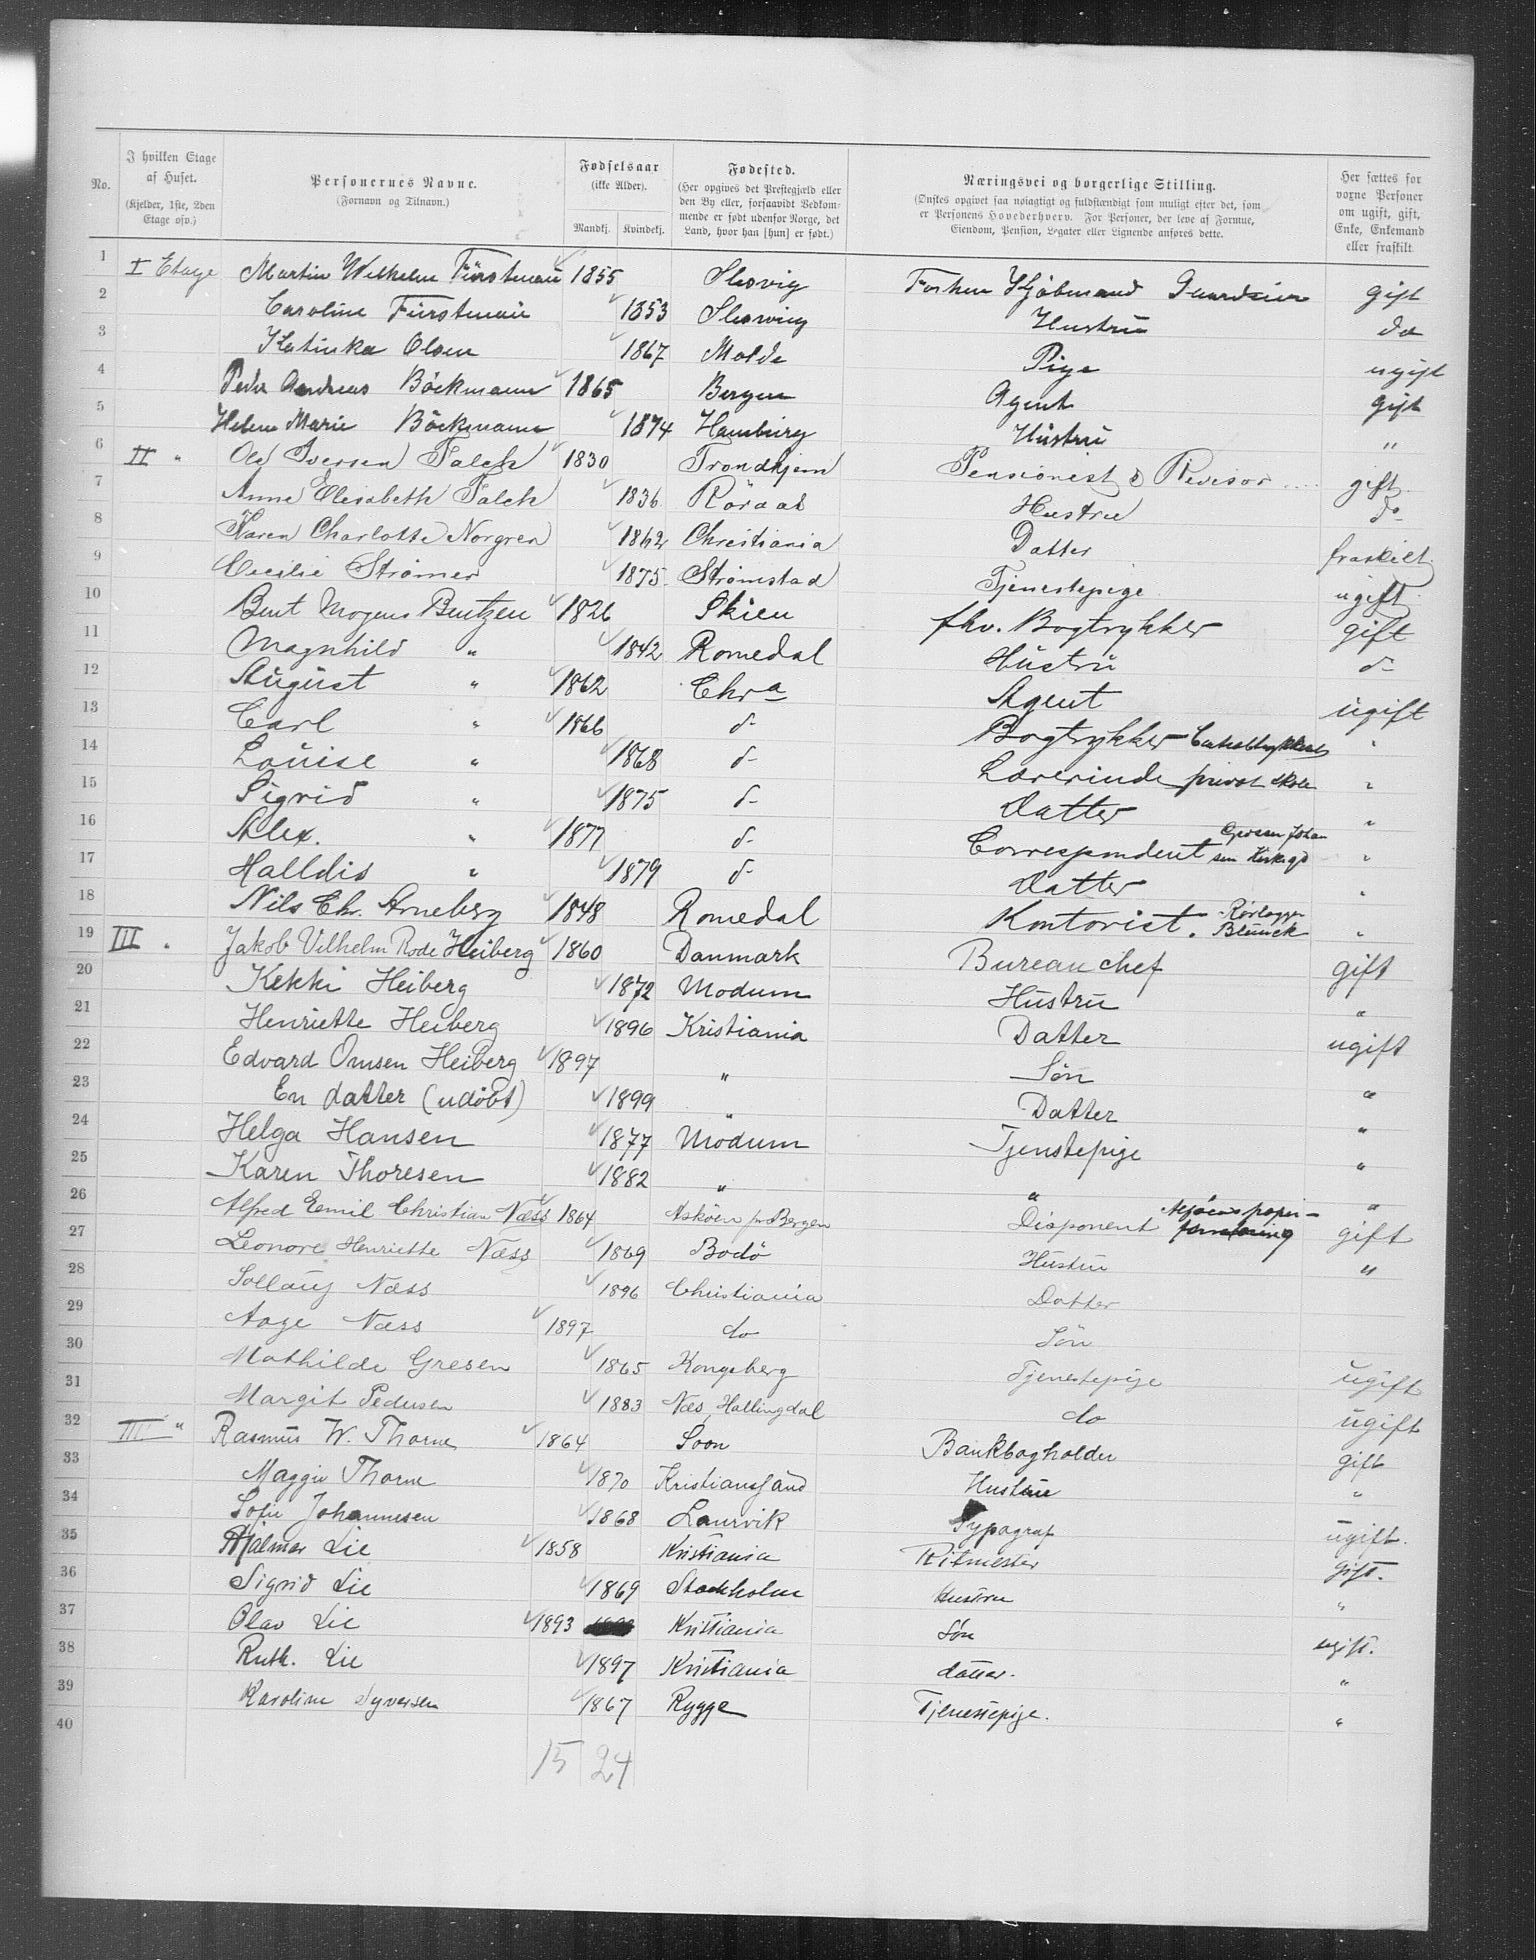 No.
I hvilken Etage af Huset.
(Kjelder, 1ste, 2den Etage osv.)
Personernes Navne.
(Fornavn og Tilnavn.)
Fødselsaar
(ikke Alder).
Mandkj. Kvindekj.
Fødested.
(Her opgives det Prestegjæld eller den By eller, forsaavidt Vedkommende er født udenfor Norge, det Land, hvor han [hun] er født.)
Næringsvei og borgerlige Stilling.
(Ønskes opgivet saa nøiagtigt og fuldstændigt som muligt efter det, som er Personens Hovederhverv. For Personer, der leve af Formue, Eiendom, Pension, Legater eller Lignende anføres dette.
Her sættes for voxne Personer om ugift, gift, Enke, Enkemand eller fraskilt
1 I Etage Martin Wilhelm Fürstnau 1855 Slesvig Kjøbmand gift
2 Caroline Fürstnau 1853 Sleswig Hustru do
3 Katinka Olsen 1867 Molde Pige ugift
4 Peder Andreas Böckmann 1865 Bergen Agent gift
5 Helene Marie Böckmann 1874 Hamburg Hustru "
6 II " Ole Iversen Falch 1830 Trondhjem Pensionist & Revisor gift
7 Anne Elisabeth Falch 1836 Röraas Hustru do
8 Karen Charlotte Norgren 1862 Christiania Datter fraskilt
9 Cecilie Strømer 1875 Strømstad Tjenestepige ugift
10 Bent Mogens Bentzen 1826 Skien fhv. Bogtrykker gift
11 Magnhild " 1842 Romedal Hustru d-
12 August " 1862 Chra Agent ugift
13 Carl " 1866 d- Bogtrykker Centraltrykkeriet "
14 Louise " 1868 d- Lærerinde privat skole "
15 Sigrid " 1875 d- Datter "
16 Alex. " 1877 d- Correspondent "
17 Halldis " 1879 d- Datter "
18 Nils Chr. Arneberg 1848 Romedal Kontorist. Rørlægger Blunck "
19 III " Jakob Vilhelm Rode Heiberg 1860 Danmark Bureauchef gift
20 Kekki Heiberg 1872 Modum Hustru "
21 Henriette Heiberg 1896 Kristiania Datter ugift
22 Edvard Omsen Heiberg 1897 " Søn "
23 En datter (udøbt) 1899 " Datter "
24 Helga Hansen 1877 Modum Tjenstepige "
25 Karen Thoresen 1882 " " "
26 Alfred Emil Christian Næss 1864 Asköen pr Bergen Disponent gift
27 Leonore Henriette Næss 1869 Bodö Hustru "
28 Sollaug Næss 1896 Christiania Datter
29 Aage Næss 1897 do Sön
30 Mathilde Gresen 1865 Kongsberg Tjenestepige ugift
31 Margit Pedersen 1883 Næs, Hallingdal do ugift
32 IIII " Rasmus W. Thorne 1864 Soon Bankbogholder gift
33 Maggie Thorne 1870 Kristianssand Hustru "
34 Sofie Johannesen 1868 Laurvik Typograf ugift.
35 Hjalmar Lie 1858 Kristiania Ritmester gift.
36 Sigrid Lie 1869 Stockholm Hustru "
37 Olav Lie 1893 Kristiania Søn ugift.
38 Ruth. Lie 1897 Kristiania datter. "
39 Karoline Syversen 1867 Rygge Tjenestepige. "
40
15 24